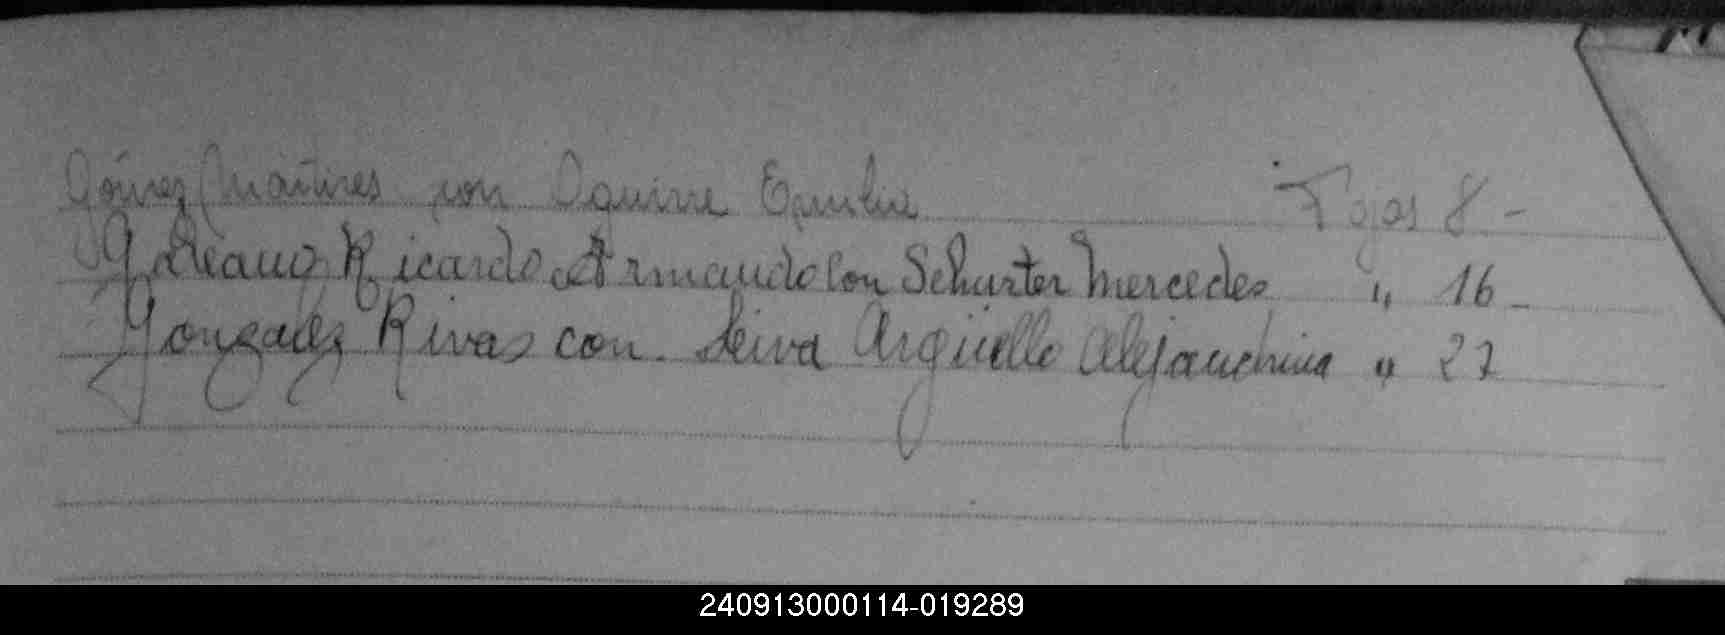 Gómez Martires con Aguirre Emilia Fojas 8 -
Galeano Ricardo Armando Con Schurter Mercedes " 16 -
Gonzalez Rivas con. Leiva Argüello Alejandrina " 27
240913000114-019289